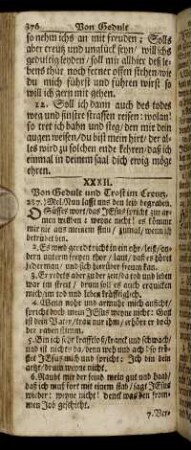 376 Von Gedult
so nehm ichs an mit freuden: Solls
aber creutz und unglück seyn/ will ichs
gedultig leyden/ soll mir allhier deß le-
bens thür noch ferner offen stehen/wie
du mich führst und führen wirst so
will ich gern mit gehen.
12. Soll ich dann auch des todes
weg und finstre strassen reisen: wolan!
so tret ich bahn und steg/den mir dein
augen weisen/du bist mein hirt/ der al-
les wird zu solchen ende kehren/daß ich
einmal in deinem saal dich ewig möge
ehren.
XXXII.
Von Gedult und Trost im Creutz.
287. Mel. Nun lasst uns den leib begraben.
O Süsses wort/das JEsus spricht zur ar-
men wittwen: weyne nicht! es kommt
mir nie aus meinem sinn/ zumal/ wenn ich
betrübet bin.
2. Es wird geredt nicht in ein ohr/ leiß/ son-
dern unterm freyen thor/ laut/ daß es höret
jederman/ und sich hierüber freuen kan.
3. Er redts aber zu der zeit/da tod und leben
war im streit/ drum soll es auch erquicken
mich/ im tod und leben kräfftiglich.
4. Wenn noth und armuth mich anficht/
spricht doch mein JEsus: weyne nicht: Gott
ist dein Vater/ trau nur ihm/ erhört er doch
der raben stimm.
5. Bin ich sehr krafftloß/ kranck und schwach/
und ist nichts da/ denn weh und ach/ so trö-
stet JEsus mich und spricht: Ich bin dein
artzt/ drum weyne nicht.
6. Raubt mir der feind mein gut und haab/
daß ich muß fort mit einem stab/ sagt JEsus
wieder: weyne nicht: denck was dem from-
men Job geschicht.
7. Ver-